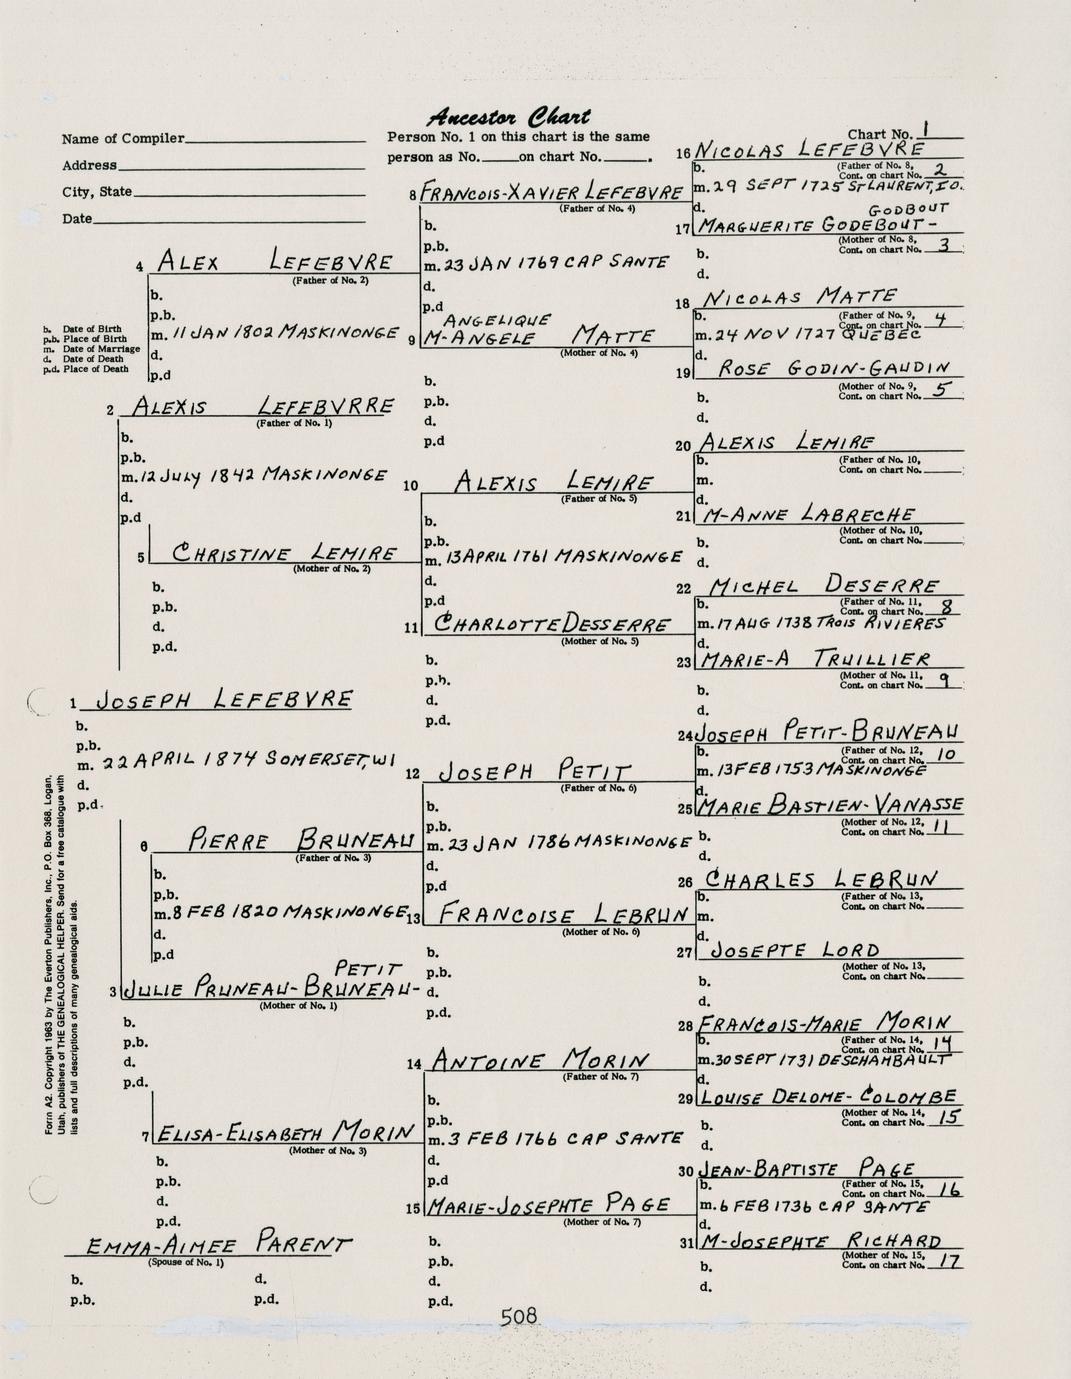 Ancestor Chart
Name of Compiler
Address
City, State
Date
Person No. 1 on this chart is the same
person as No. on chart No. .
Chart No. 1
b. Date of Birth
p.b. Place of Birth
m. Date of Marriage
d. Date of Death
p.d. Place of Death
1 JOSEPH LEFEBVRE
b.
p.b.
m. 22 APRIL 1874 SOMERSET, WI
d.
p.d.
2 ALEXIS LEFEBVRRE
(Father of No. 1)
b.
p.b.
m. 12 JULY 1842 MASKINONGE
d.
p.d
PETIT
3 JULIE PRUNEAU-BRUNEAU-
(Mother of No. 1)
b.
p.b.
d.
p.d.
4 ALEX LEFEBVRE
(Father of No. 2)
b.
p.b.
m. 11 JAN 1802 MASKINONGE
d.
p.d
5 CHRISTINE LEMIRE
(Mother of No. 2)
b.
p.b.
d.
p.d.
6 PIERRE BRUNEAU
(Father of No. 3)
b.
p.b.
m. 8 FEB 1820 MASKINONGE
d.
p.d
7 ELISA-ELISABETH MORIN
(Mother of No. 3)
b.
p.b.
d.
p.d.
EMMA-AIMEE PARENT
(Spouse of No. 1)
b. d.
p.b. p.d.
8 FRANCOIS-XAVIER LEFEBVRE
(Father of No. 4)
b.
p.b.
m. 23 JAN 1769 CAP SANTE
d.
p.d
ANGELIQUE
9 M-ANGELE MATTE
(Mother of No. 4)
b.
p.b.
d.
p.d
10 ALEXIS LEMIRE
(Father of No. 5)
b.
p.b.
m. 13 APRIL 1761 MASKINONGE
d.
p.d
11 CHARLOTTE DESSERRE
(Mother of No. 5)
b.
p.b.
d.
p.d.
12 JOSEPH PETIT
(Father of No. 6)
b.
p.b.
m. 23 JAN 1786 MASKINONGE
d.
p.d
13 FRANCOISE LEBRUN
(Mother of No. 6)
b.
p.b.
d.
p.d.
14 ANTOINE MORIN
(Father of No. 7)
b.
p.b.
m. 3 FEB 1766 CAP SANTE
d.
p.d
15 MARIE-JOSEPHTE PAGE
(Mother of No. 7)
b.
p.b.
d.
p.d.
16 NICOLAS LEFEBVRE
b. (Father of No. 8,
Cont. on chart No. 2
m. 29 SEPT 1725 ST LAURENT, I.O.
d.
GODBOUT
17 MARGUERITE GODEBOUT-
(Mother of No. 8,
b. Cont. on chart No. 3
d.
18 NICOLAS MATTE
b. (Father of No. 9,
Cont. on chart No. 4
m. 24 NOV 1727 QUEBEC
d.
19 ROSE GODIN-GAUDIN
(Mother of No. 9,
b. Cont. on chart No. 5
d.
20 ALEXIS LEMIRE
b. (Father of No. 10,
Cont. on chart No.
m.
d.
21 M-ANNE LABRECHE
(Mother of No. 10,
b. Cont. on chart No.
d.
22 MICHEL DESERRE
b. (Father of No. 11,
Cont. on chart No. 8
m. 17 AUG 1738 TROIS RIVIERES
d.
23 MARIE-A TRUILLIER
(Mother of No. 11,
b. Cont. on chart No. 9
d.
24 JOSEPH PETIT-BRUNEAU
b. (Father of No. 12,
Cont. on chart No. 10
m. 13 FEB 1753 MASKINONGE
d.
25 MARIE BASTIEN-VANASSE
(Mother of No. 12,
b. Cont. on chart No. 11
d.
26 CHARLES LEBRUN
b. (Father of No. 13,
Cont. on chart No.
m.
d.
27 JOSEPTE LORD
(Mother of No. 13,
b. Cont. on chart No.
d.
28 FRANCOIS-MARIE MORIN
b. (Father of No. 14,
Cont. on chart No. 14
m. 30 SEPT 1731 DESCHAMBAULT
d.
29 LOUISE DELOME-COLOMBE
(Mother of No. 14,
b. Cont. on chart No. 15
d.
30 JEAN-BAPTISTE PAGE
b. (Father of No. 15,
Cont. on chart No. 16
m. 6 FEB 1736 CAP SANTE
d.
31 M-JOSEPHTE RICHARD
(Mother of No. 15,
b. Cont. on chart No. 17
d.
Form A2. Copyright 1963 by The Everton Publishers, Inc., P.O. Box 368, Logan,
Utah, publishers of THE GENEALOGICAL HELPER. Send for a free catalogue with
lists and full descriptions of many genealogical aids.
508